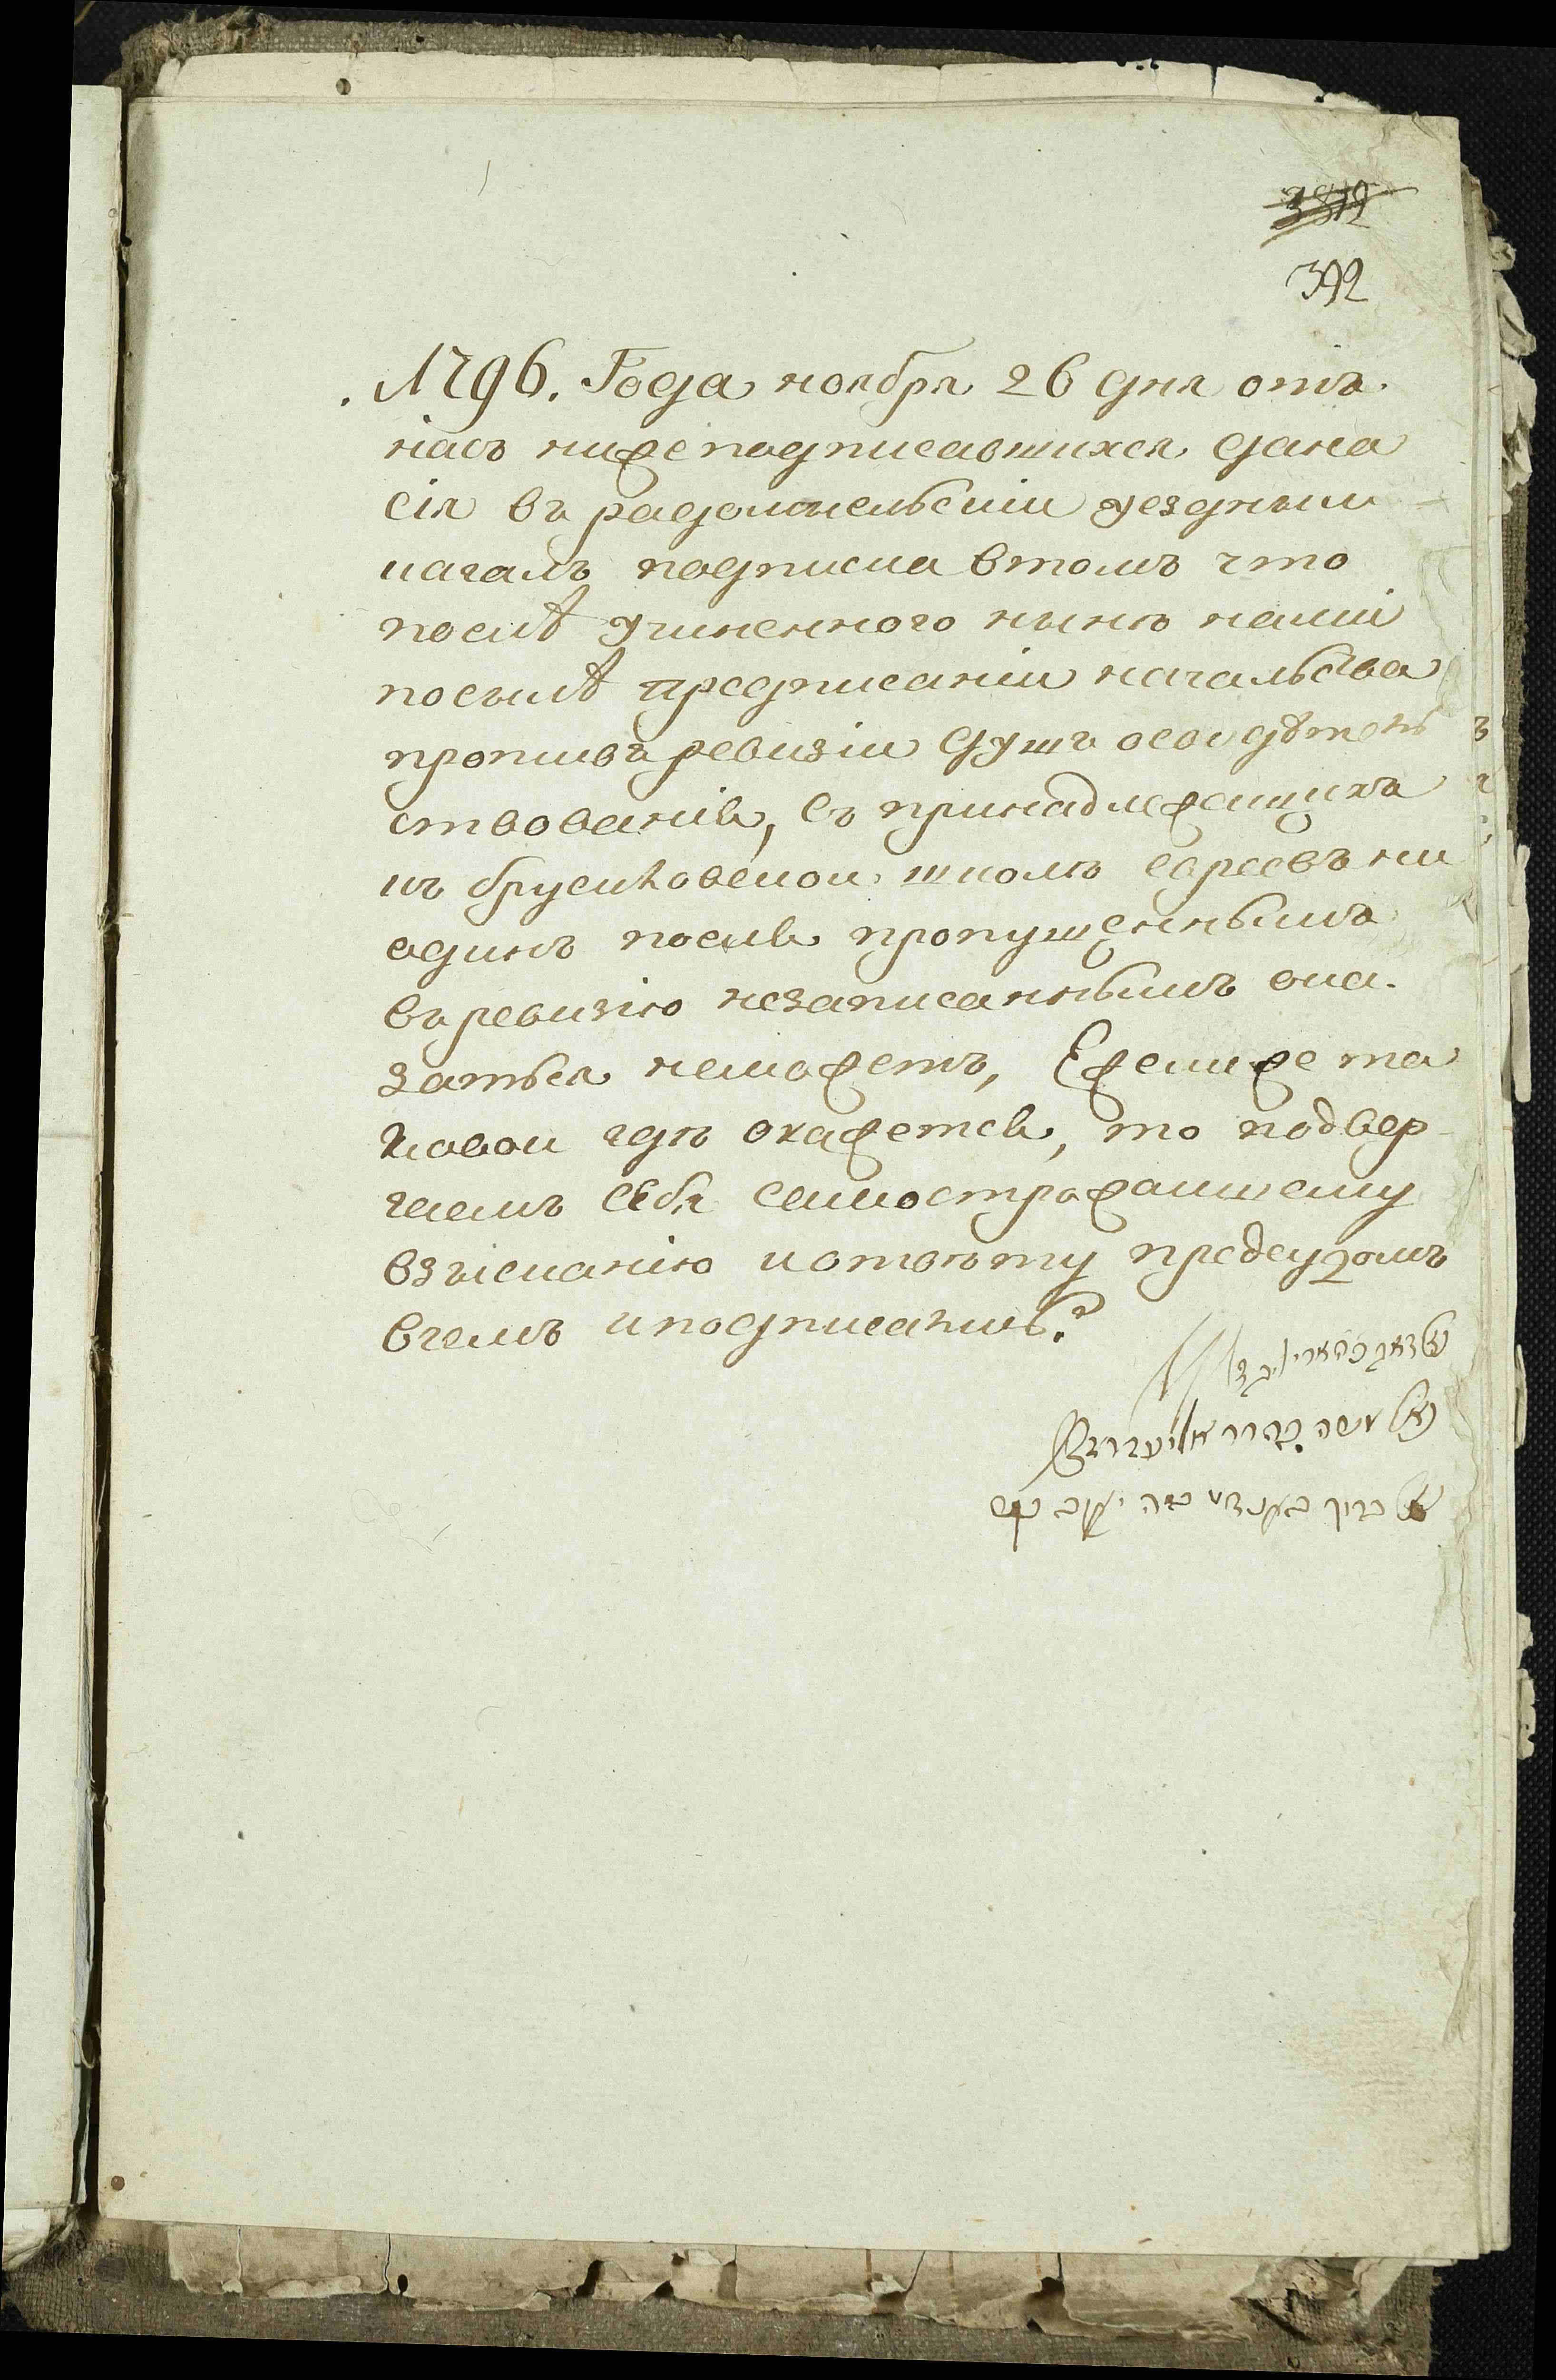 392
1796. Года ноября 26 дня отъ
насъ нижеподписавшихся дана
сія въ радомисльскій уездный
кагалъ подписка втомъ что
послѣ учиненного нынѣ нами
посылѣ предписаніи начальства
противъ ревизіи душъ освидѣтель
ствованія, съ принадлежащихъ
къ брусиловской школѣ евреевъ ни
единъ послѣ пропущеннымъ
въ ревизію незаписаннымъ ока.
заться неможетъ, Ежелиже та
ковой гдѣ окажется, то подвер
гаемъ себя самостражайшему
взысканію иотвѣту предсудомъ
вчемъ иподписались.